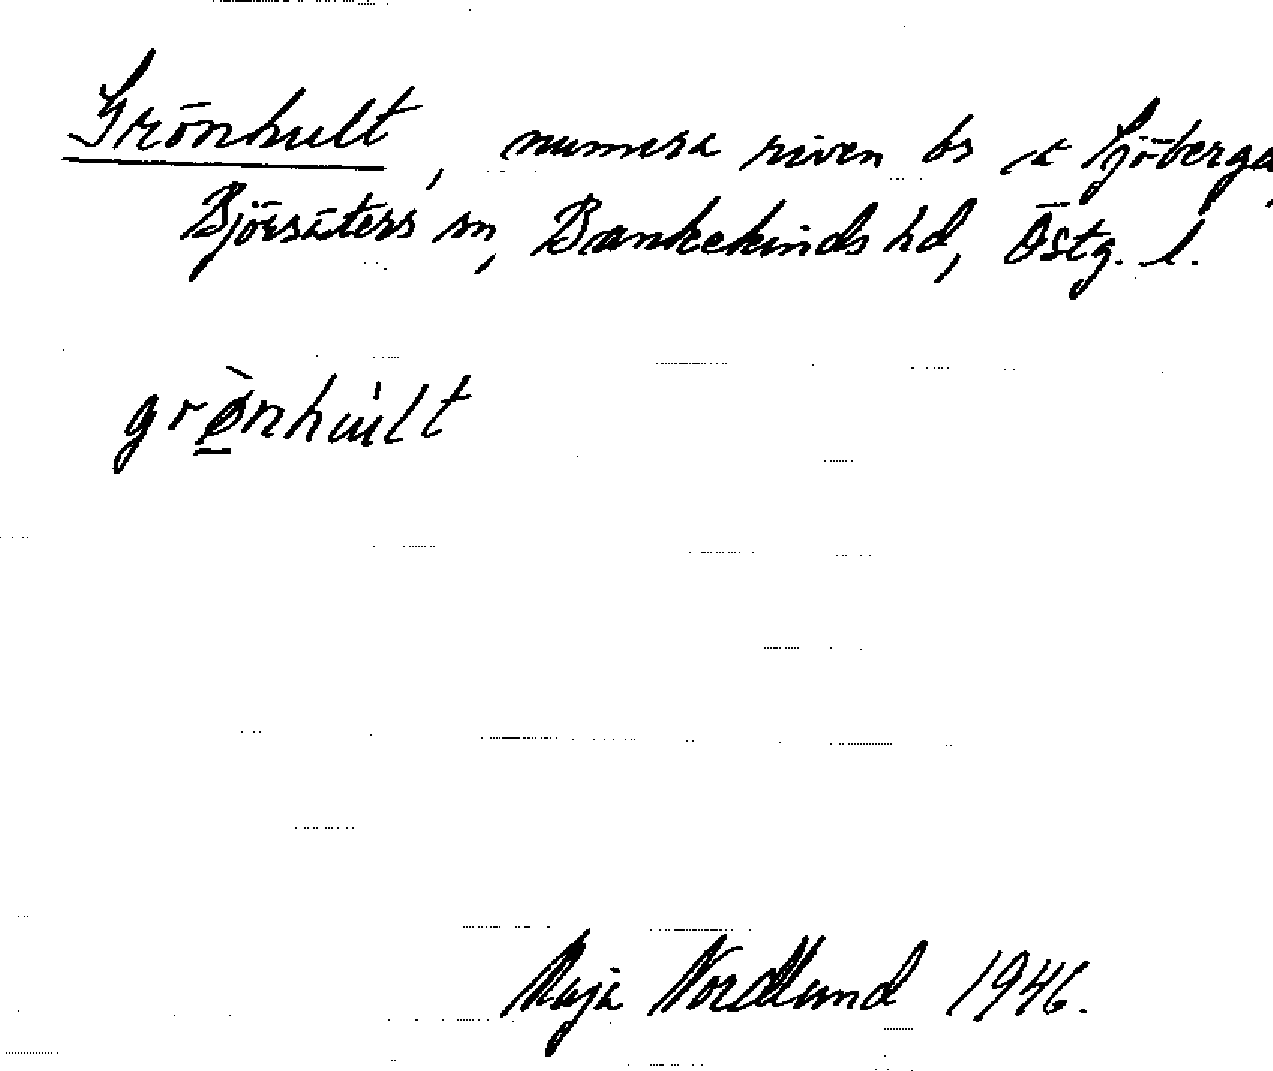 Grönhult, numera riven bs å Sjöberga,
Björsäters sn, Bankekinds hd, Östg. l.
grø̀nhúlt
Maja Nordlund 1946.